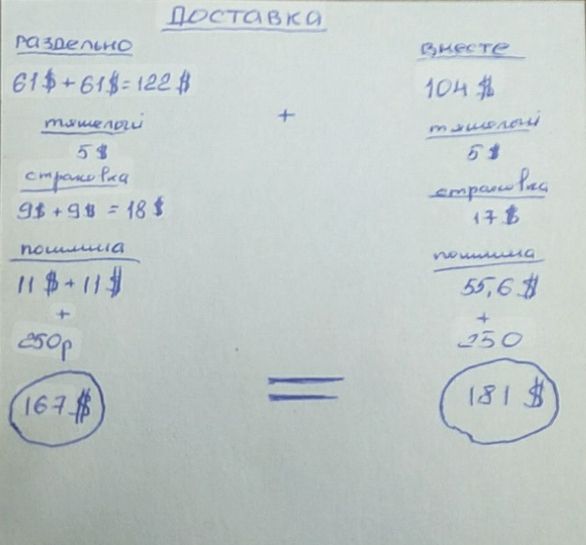 ДОСТАВКА
РАЗДЕЛЬНО
61$ + 61$ = 122$
тяжелый
5$
страховка
9$ + 9$ = 18$
пошлина
11$ + 11$
+
250р
167$
+
=
ВМЕСТЕ
104$
тяжелый
5$
страховка
17$
пошлина
55,6$
+
250
181$